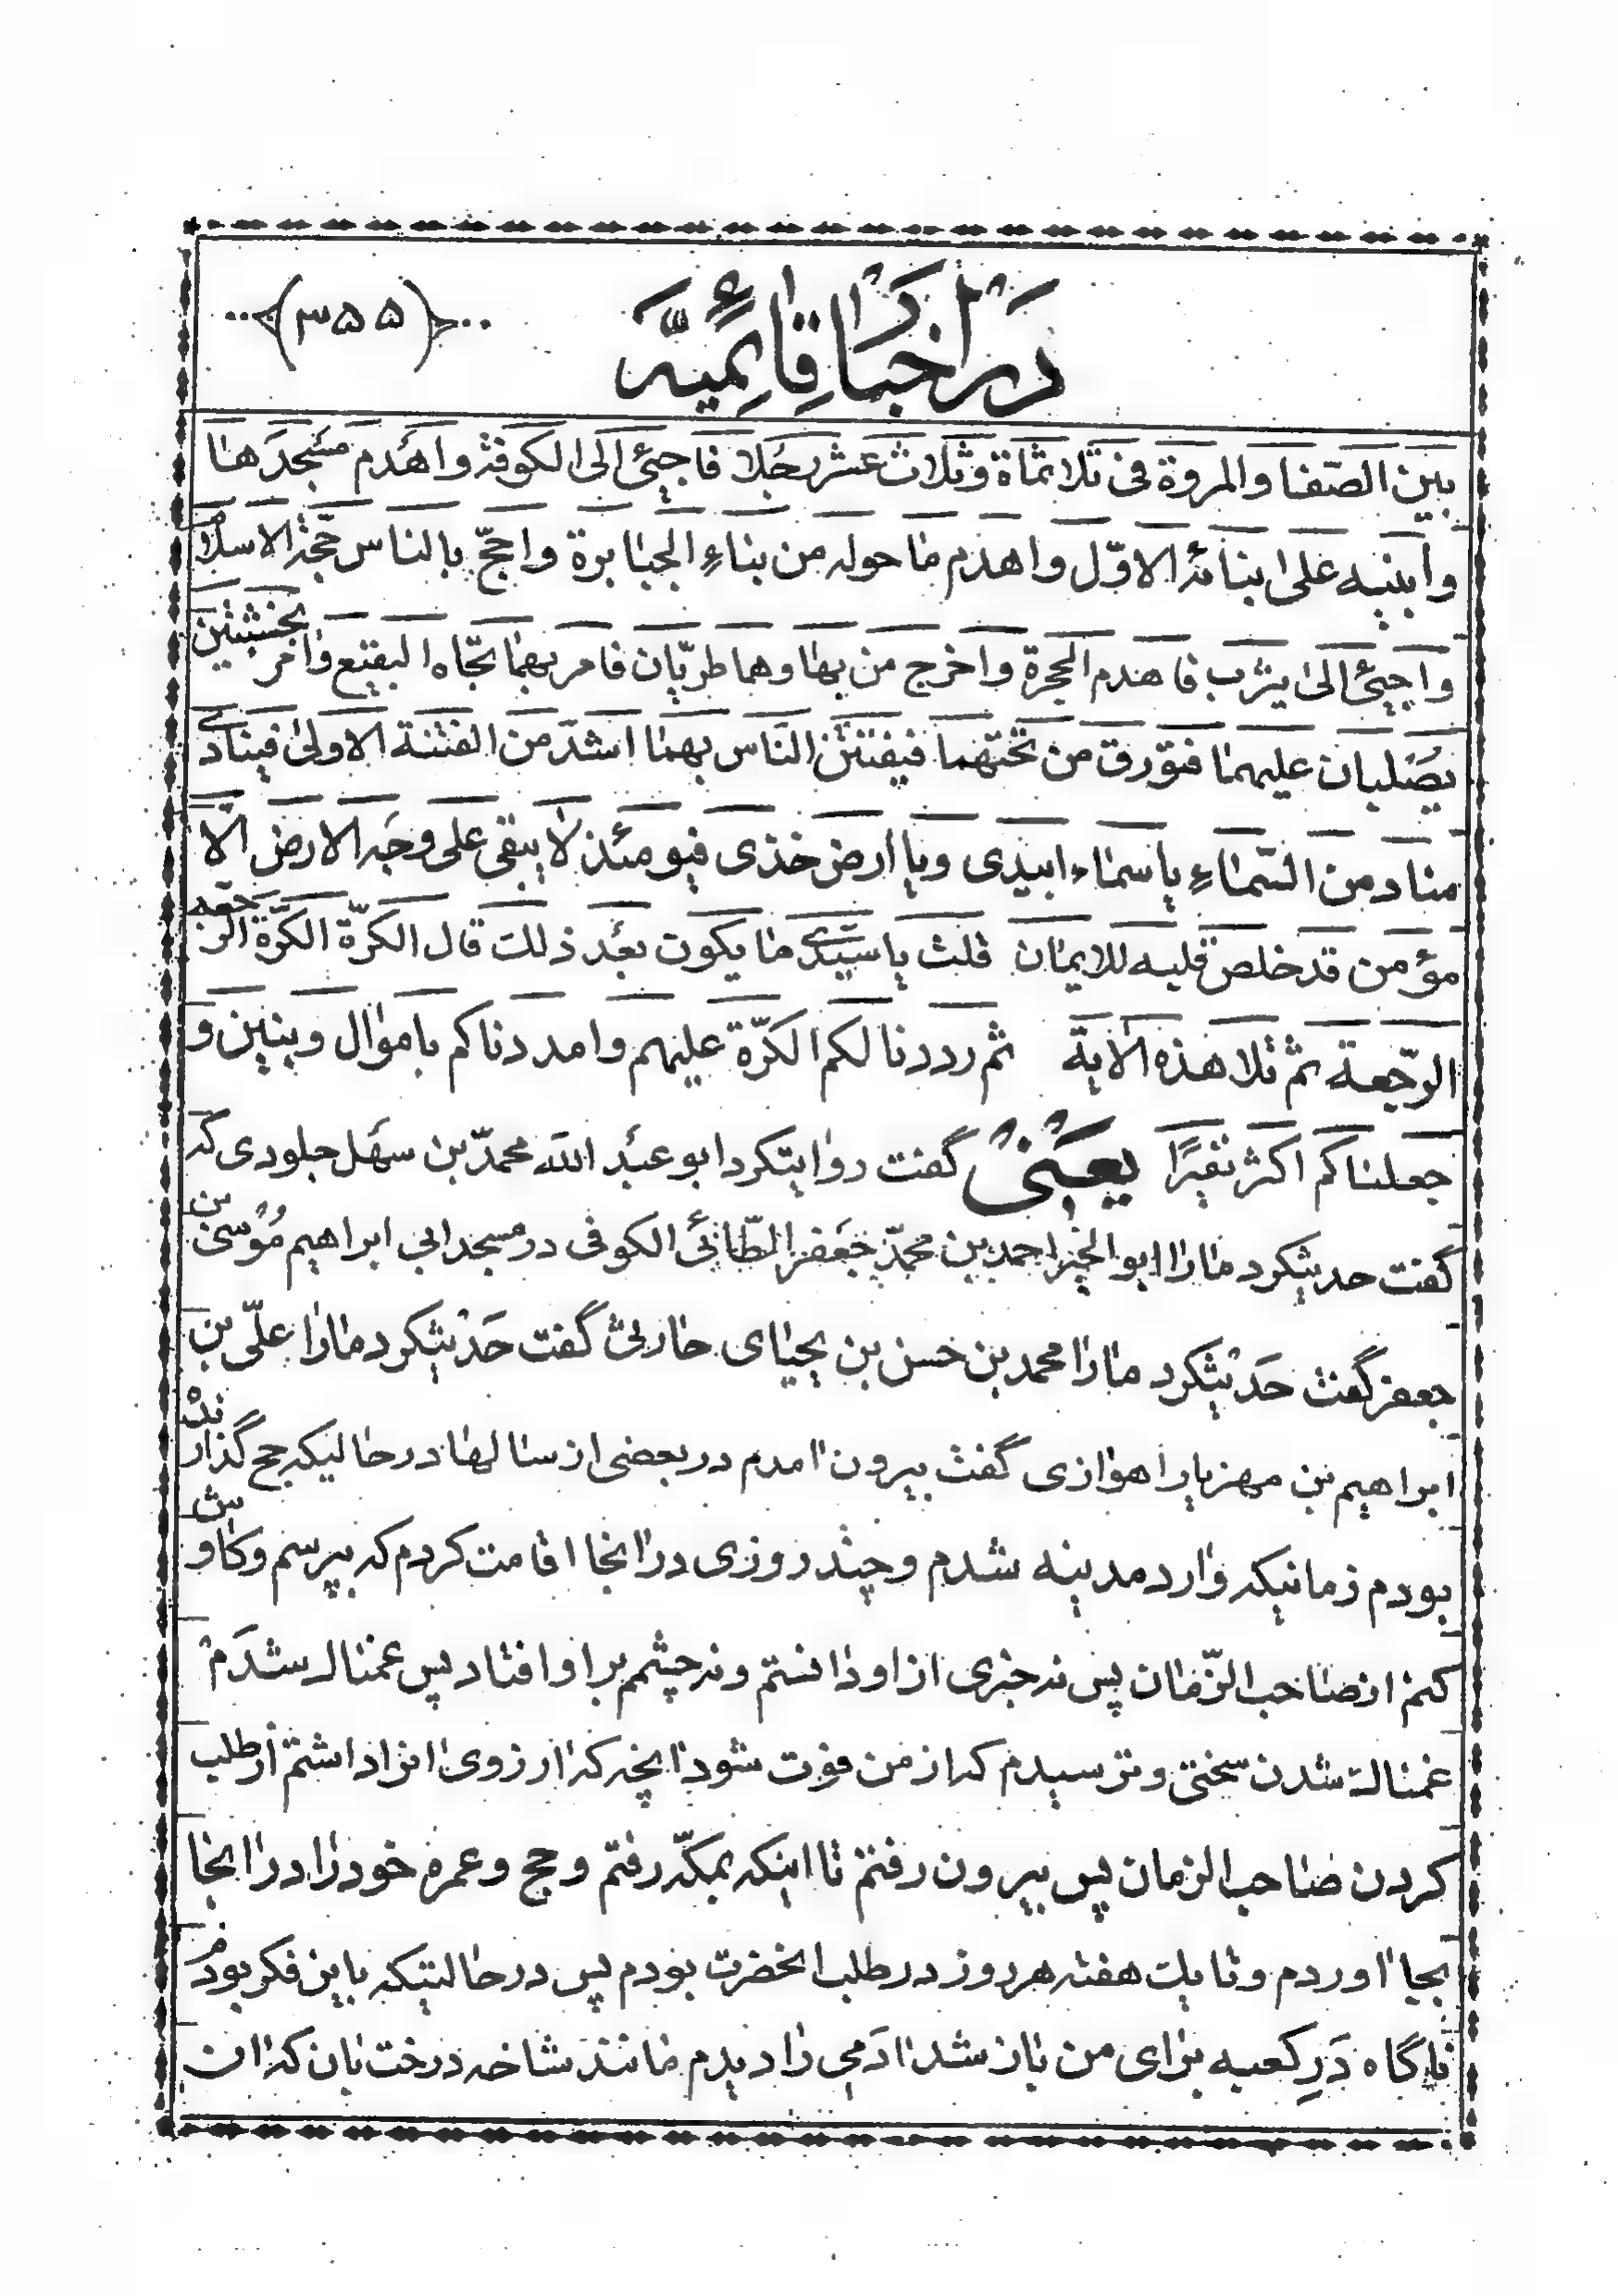 در اخبار قائمیّه
﴿۳۵۵﴾
بین الصّفا والمروة فی ثلاثمأة وثلاث عشر رجلا فاجیئ الی الکوفة واهدم مسجدها
وابنیه علی بنائه الاوّل واهدم ما حوله من بناء الجبابرة واحجّ بالناس حجّة الاسلام
واجیئ الی یثرب فاهدم الحجرة واخرج من بها وهما طریّان فامر بهما تجاه البقیع وامر بخشبتین
یصلبان علیهما فتورق من تحتهما فیفتتن النّاس بهما اشدّ من الفتنة الاولی فینادی
مناد من السّماء یا سماء ابیدی ویا ارض خذی فیومئذ لا یبقی علی وجه الارض الّا
مؤمن قد خلص قلبه للایمان قلت یا سیّدی ما یکون بعد ذلک قال الکرّة الکرّة الرّجعه
الرّجعة ثم تلا هذه الایة ثم رددنا لکم الکرّة علیهم وامددناکم باموال وبنین و
جعلناکم اکثر نفیرًا یعنی گفت روایتکرد ابو عبد الله محمّد بن سهل جلودی که
گفت حدیثکرد ما را ابو الخیر احمد بن محمّد جعفر الطّائی الکوفی در مسجد ابی ابراهیم موسی بن
جعفر گفت حدیثکرد ما را محمد بن حسن بن یحیای حارثی گفت حدیثکرد ما را علّی بن
ابراهیم بن مهزیار اهوازی گفت بیرون امدم در بعضی از سالها در حالیکه حج گذارنده
بودم زمانیکه وارد مدینه شدم وچند روزی در انجا اقامت کردم که بپرسم وکاوش
کنم از صاحب الزّمان پس نه خبری از او دانستم ونه چشمم بر او افتاد پس غمناک شدم
غمناک شدن سختی وترسیدم که از من فوت شود انچه که ارزوی انرا داشتم از طلب
کردن صاحب الزمان پس بیرون رفتم تا اینکه بمکّه رفتم وحج وعمره خود را در انجا
بجا اوردم وتا یک هفته هر روز در طلب انحضرت بودم پس در حالتیکه باین فکر بودم
ناگاه در کعبه برای من باز شد ادمی را دیدم مانند شاخه درخت بان که ان